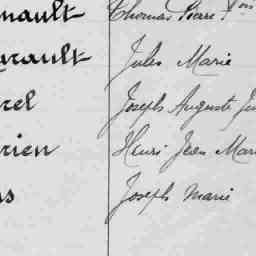 nault Thomas Pierre Fois
arault Jules Marie
rel Joseph Auguste
rien Henri Jean Mari
s Joseph Marie